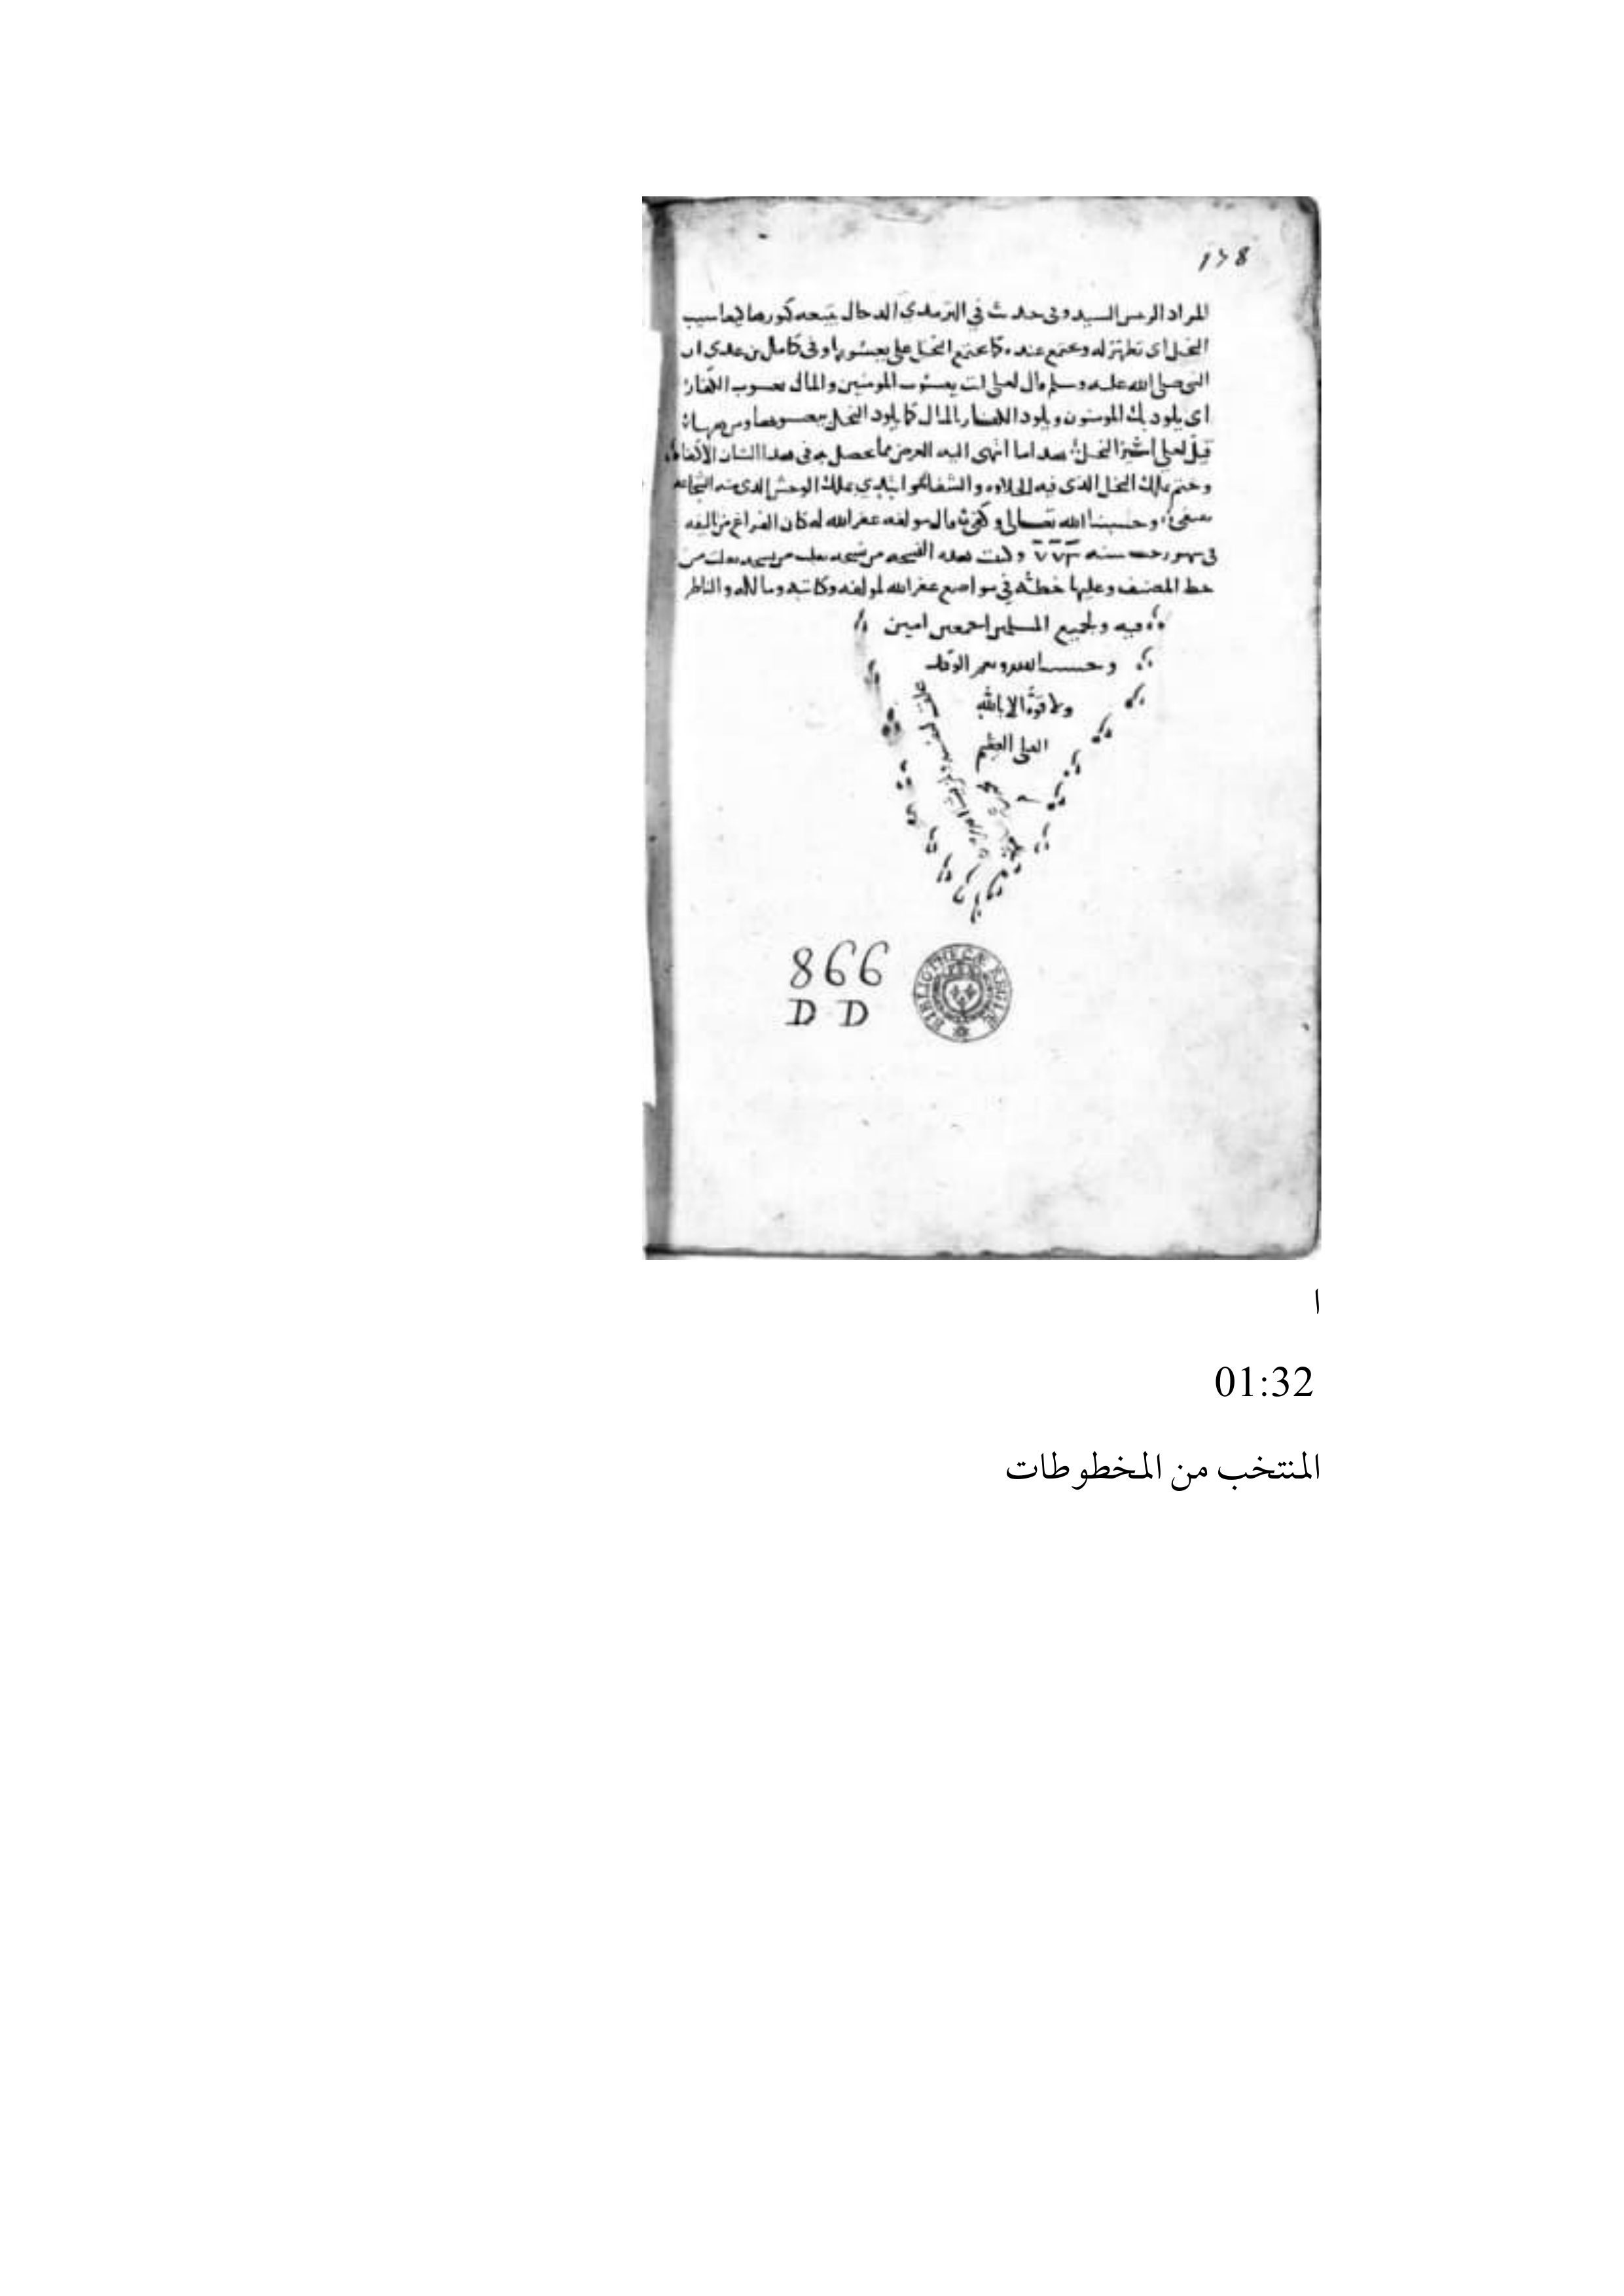 178
المراد الرئيس السيد وفي حديث في الترمذي الدجال يتبعه كنوزها كيعاسيب
النحل اى تظهر له وتجتمع عنده كما تجتمع النحل على يعسوبها وفى كامل بن عدى ان
النبى صلى الله عليه وسلم قال لعلى انت يعسوب المومنين والمال يعسوب الكفار
اى يلوذ بك المومنون ويلوذ الكفار بالمال كما يلوذ النحل بيعسوبها ومن
قيل لعلى امير النحل هذا ما انتهى اليه الغرض مما يحصل به فى هذا الشان
وختم بملك النحل الذى فيه الحلاوه والشفا كما ابتدى بملك الوحش الذى منه الشجاعه
وحسبنا الله تعالى وكفى قال مولفه غفر الله له كان الفراغ من تاليفه
فى شهر رجب سنه ٧٧٣ وكتبت هذه النسخه من نسخه نقلت من نسخه نقلت من
خط المصنف وعليها خطه في مواضع غفر الله لمولفه وكاتبه ومالكه والناظر
فيه ولجميع المسلمين اجمعين امين
وحسبنا الله ونعم الوكيل
ولا قوة الا بالله
العلى العظيم
866
D D
BIBLIOTHECÆ REGIÆ
ا
01:32
المنتخب من المخطوطات